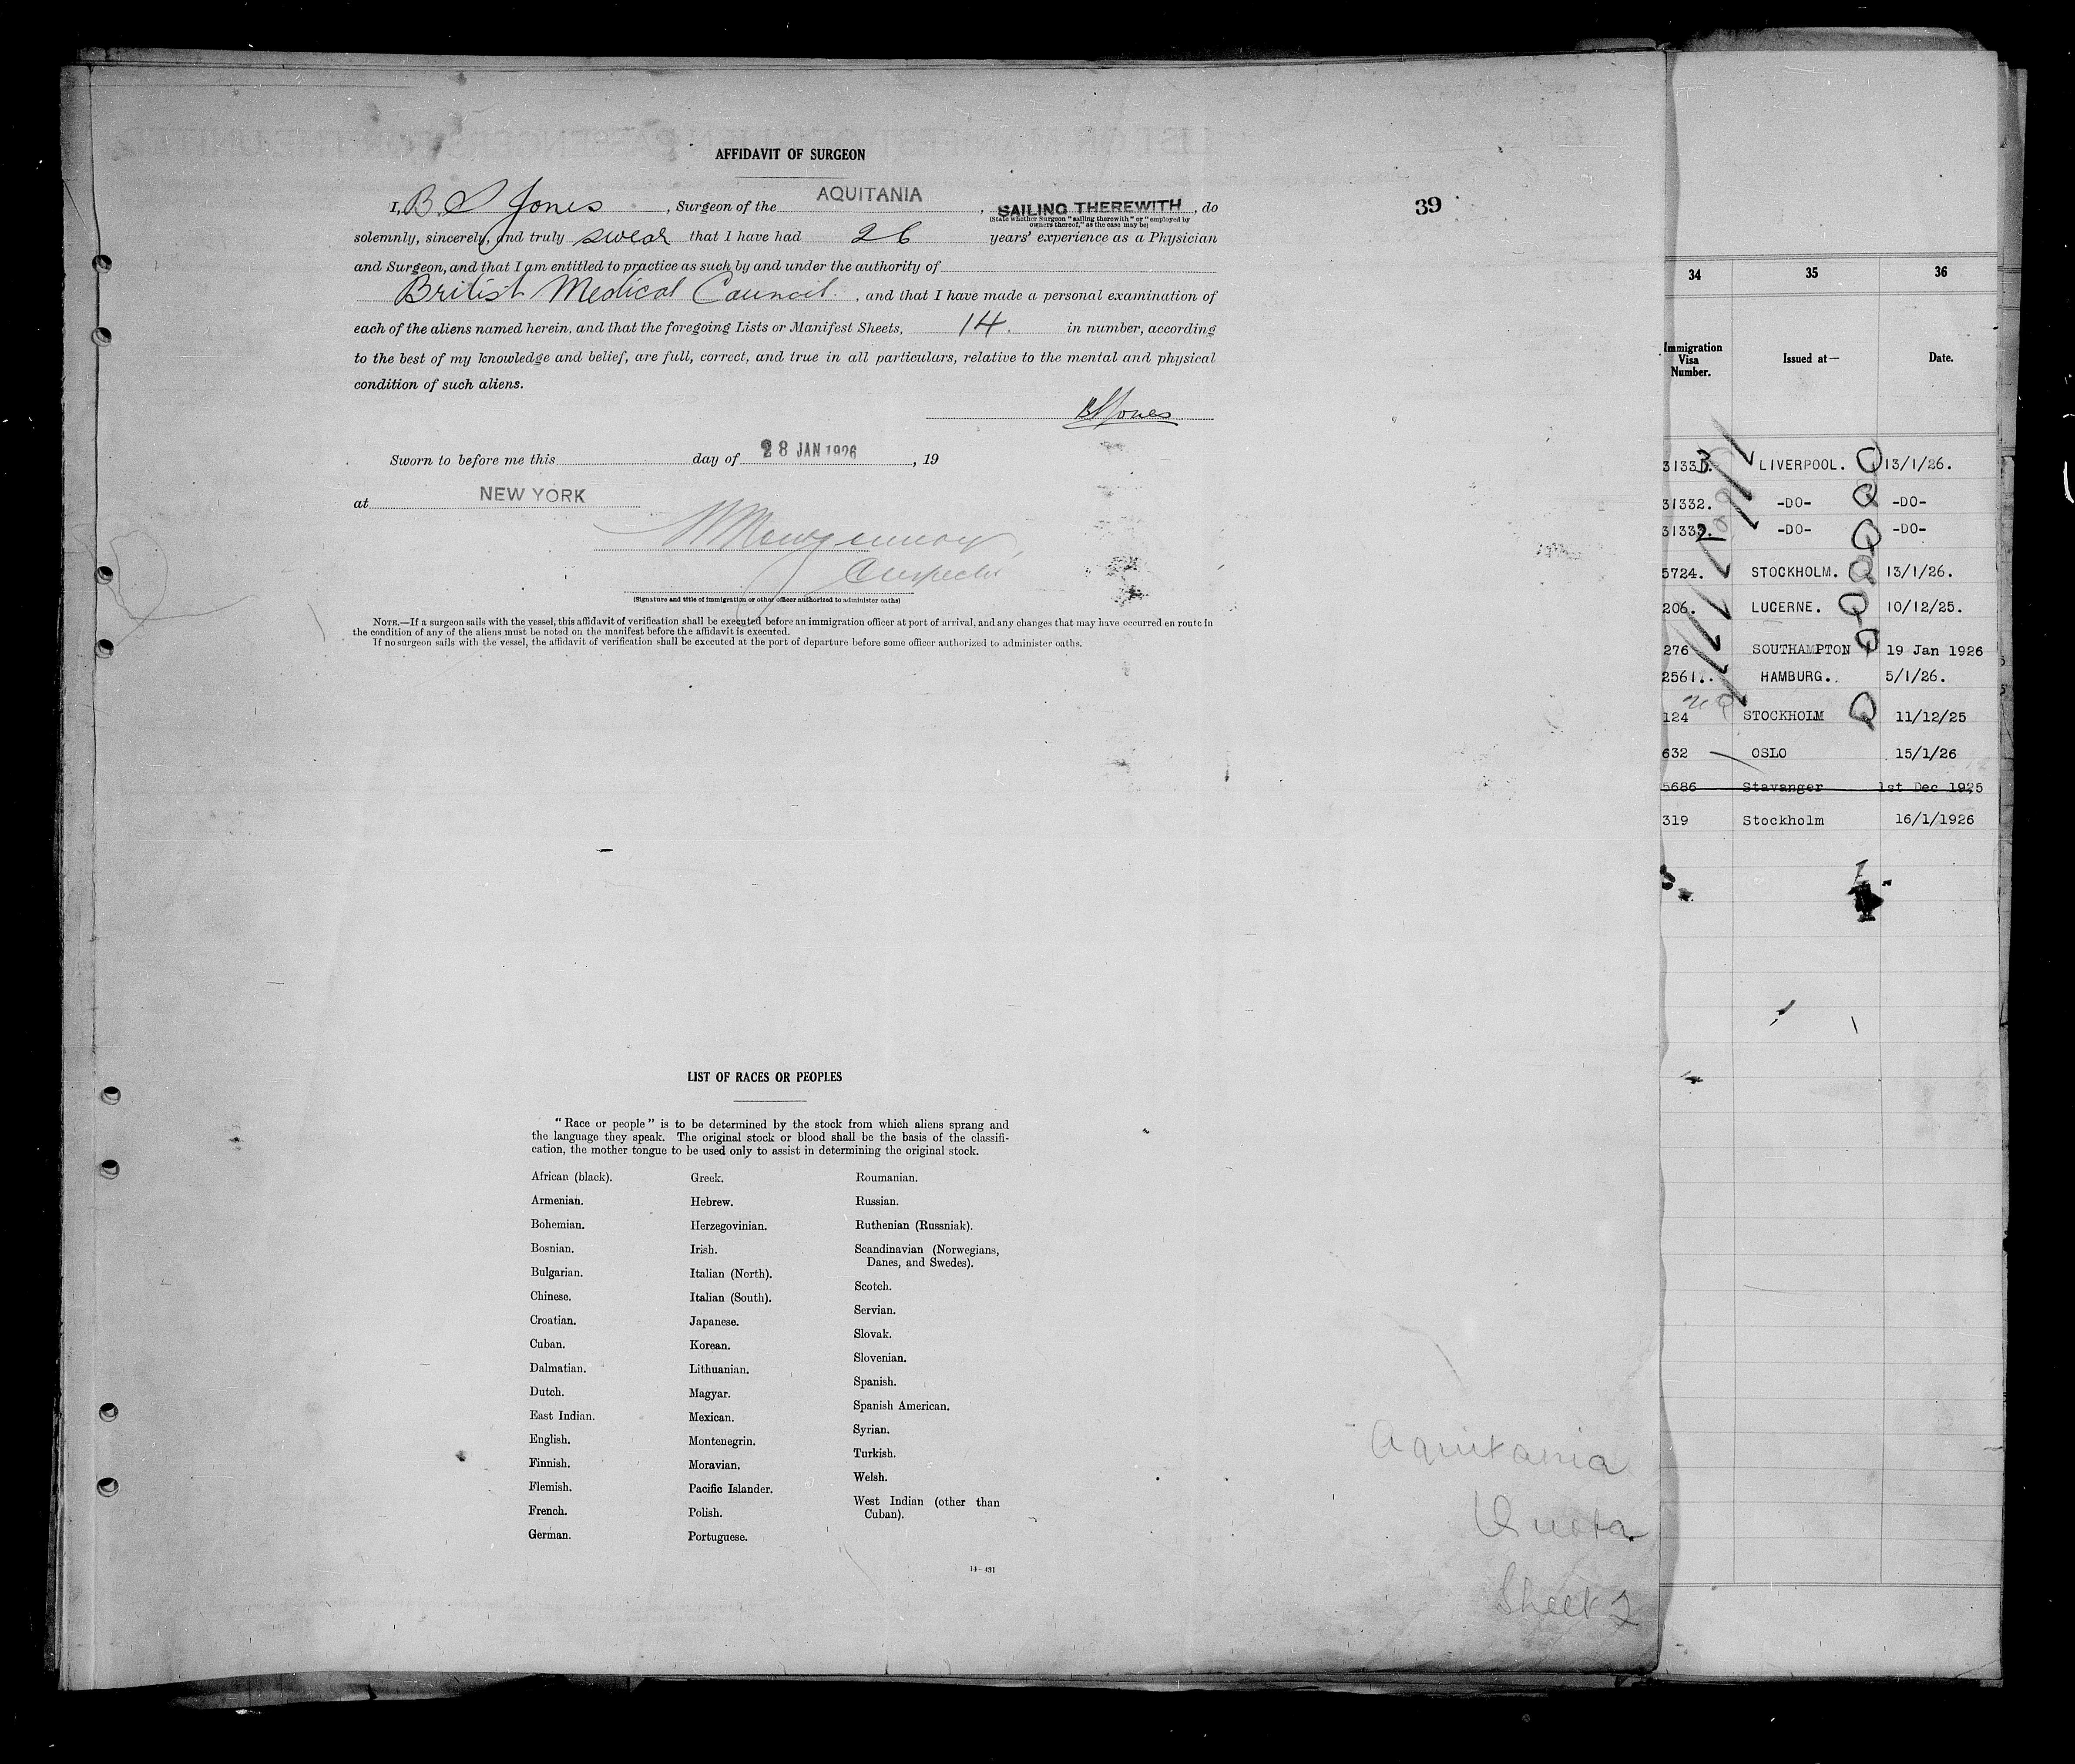 AFFIDAVIT OF SURGEON
I, B. S Jones, Surgeon of the AQUITANIA, SAILING THEREWITH, do
(State whether Surgeon "sailing therewith" or "employed by
owners thereof," as the case may be)
solemnly, sincerely, and truly swear that I have had 26 years' experience as a Physician
and Surgeon, and that I am entitled to practice as such by and under the authority of
British Medical Council, and that I have made a personal examination of
each of the aliens named herein, and that the foregoing Lists or Manifest Sheets, 14. in number, according
to the best of my knowledge and belief, are full, correct, and true in all particulars, relative to the mental and physical
condition of such aliens.
BSJones
Sworn to before me this day of 28 JAN 1926, 19
at NEW YORK
(Signature and title of immigration or other officer authorized to administer oaths)
NOTE.—If a surgeon sails with the vessel, this affidavit of verification shall be executed before an immigration officer at port of arrival, and any changes that may have occurred en route in
the condition of any of the aliens must be noted on the manifest before the affidavit is executed.
If no surgeon sails with the vessel, the affidavit of verification shall be executed at the port of departure before some officer authorized to administer oaths.
39
LIST OF RACES OR PEOPLES
"Race or people" is to be determined by the stock from which aliens sprang and
the language they speak. The original stock or blood shall be the basis of the classifi-
cation, the mother tongue to be used only to assist in determining the original stock.
African (black).
Armenian.
Bohemian.
Bosnian.
Bulgarian.
Chinese.
Croatian.
Cuban.
Dalmatian.
Dutch.
East Indian.
English.
Finnish.
Flemish.
French.
German.
Greek.
Hebrew.
Herzegovinian.
Irish.
Italian (North).
Italian (South).
Japanese.
Korean.
Lithuanian.
Magyar.
Mexican.
Montenegrin.
Moravian.
Pacific Islander.
Polish.
Portuguese.
Roumanian.
Russian.
Ruthenian (Russniak).
Scandinavian (Norwegians,
Danes, and Swedes).
Scotch.
Servian.
Slovak.
Slovenian.
Spanish.
Spanish American.
Syrian.
Turkish.
Welsh.
West Indian (other than
Cuban).
14—431
Aquitania
Quota
Sheet 2
34 35 36
Immigration
Visa
Number.
Issued at—
Date.
31333. LIVERPOOL. Q 13/1/26.
31332. -DO- Q -DO-
31332. -DO- Q -DO-
5724. STOCKHOLM. Q 13/1/26.
206. LUCERNE. Q 10/12/25.
276 SOUTHAMPTON Q 19 Jan 1926
2561. HAMBURG. 5/1/26.
124 STOCKHOLM Q 11/12/25
632 OSLO 15/1/26
5686 Stavanger 1st Dec 1925
319 Stockholm 16/1/1926